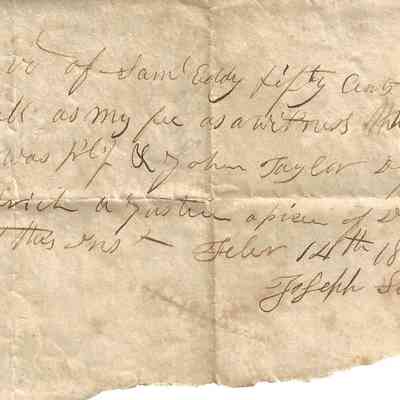 of Saml Eddy fifty Cents
as my fee as a witness
was plf & John Taylor D
a Justice
this inst Febr 14th 18
Joseph S